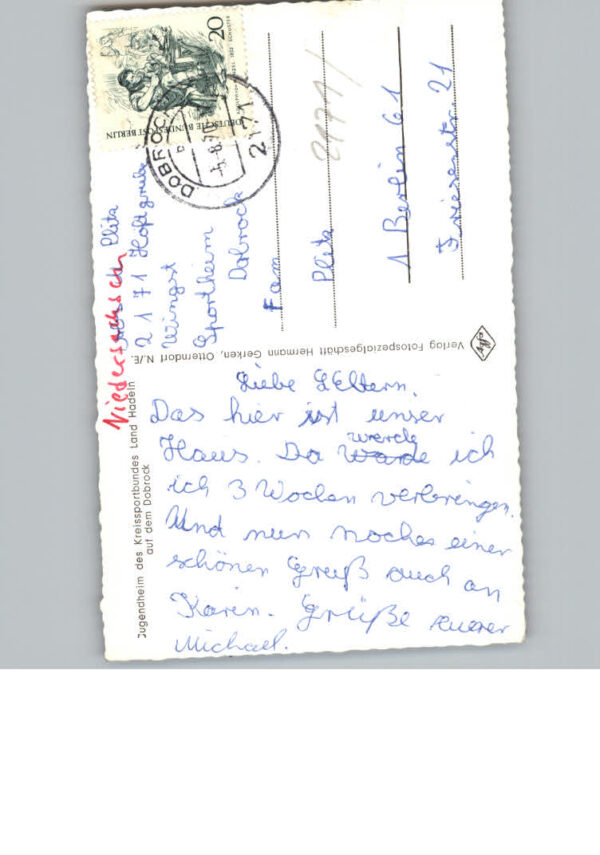 Jugendheim des Kreissportbundes Land Hadeln
auf dem Dobrock
Liebe Eltern.
Das hier ist unser
Haus. Da werde ich
ich 3 Wochen verbringen.
Und nun noches einer
schönen Gruß auch an
Karin. Grüße euerer
Michael.
Verlag Fotospezialgeschäft Hermann Gerken, Otterndorf N./E.
Niedersachsen
Plitz
2171 Höftgrube
Wingst
Sportheim
Dobrock
20
DEUTSCHE BUNDESPOST BERLIN
DOBROCK
2171
2171/
Fam
Plitz
1 Berlin 61
Friesenstr. 21